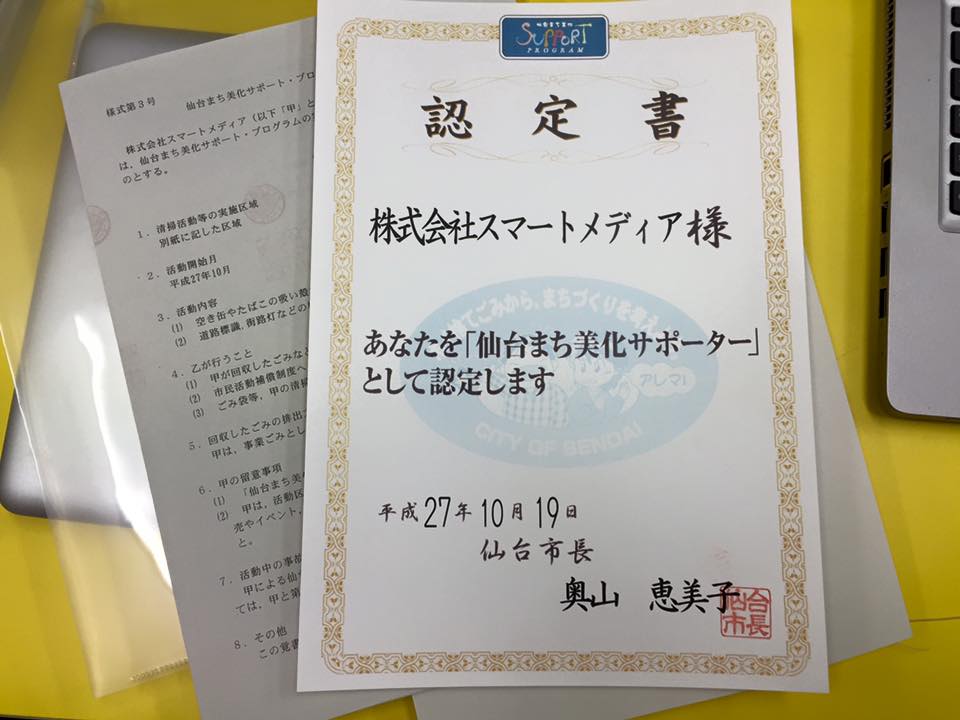 SUPPORT
PROGRAM
認定書
株式会社スマートメディア様
あなたを「仙台まち美化サポーター」
として認定します
アレマ!
CITY OF SENDAI
平成27年10月19日
仙台市長
奥山 恵美子
仙台
市長
様式第3号 仙台まち美化サポート・プロ
株式会社スマートメディア(以下「甲」と
は,仙台まち美化サポート・プログラムの
のとする。
1.清掃活動等の実施区域
別紙に記した区域
2.活動開始月
平成27年10月
3.活動内容
(1) 空き缶やたばこの吸い殻
(2) 道路標識,街路灯などの
4.乙が行うこと
(1) 甲が回収したごみなど
(2) 市民活動補償制度へ
(3) ごみ袋等,甲の清掃
5.回収したごみの排出
甲は,事業ごみとし
6.甲の留意事項
(1) 「仙台まち美
(2) 甲は,活動区
売やイベント,
と。
7.活動中の事故
甲による仙
ては,甲と第
8.その他
この覚書